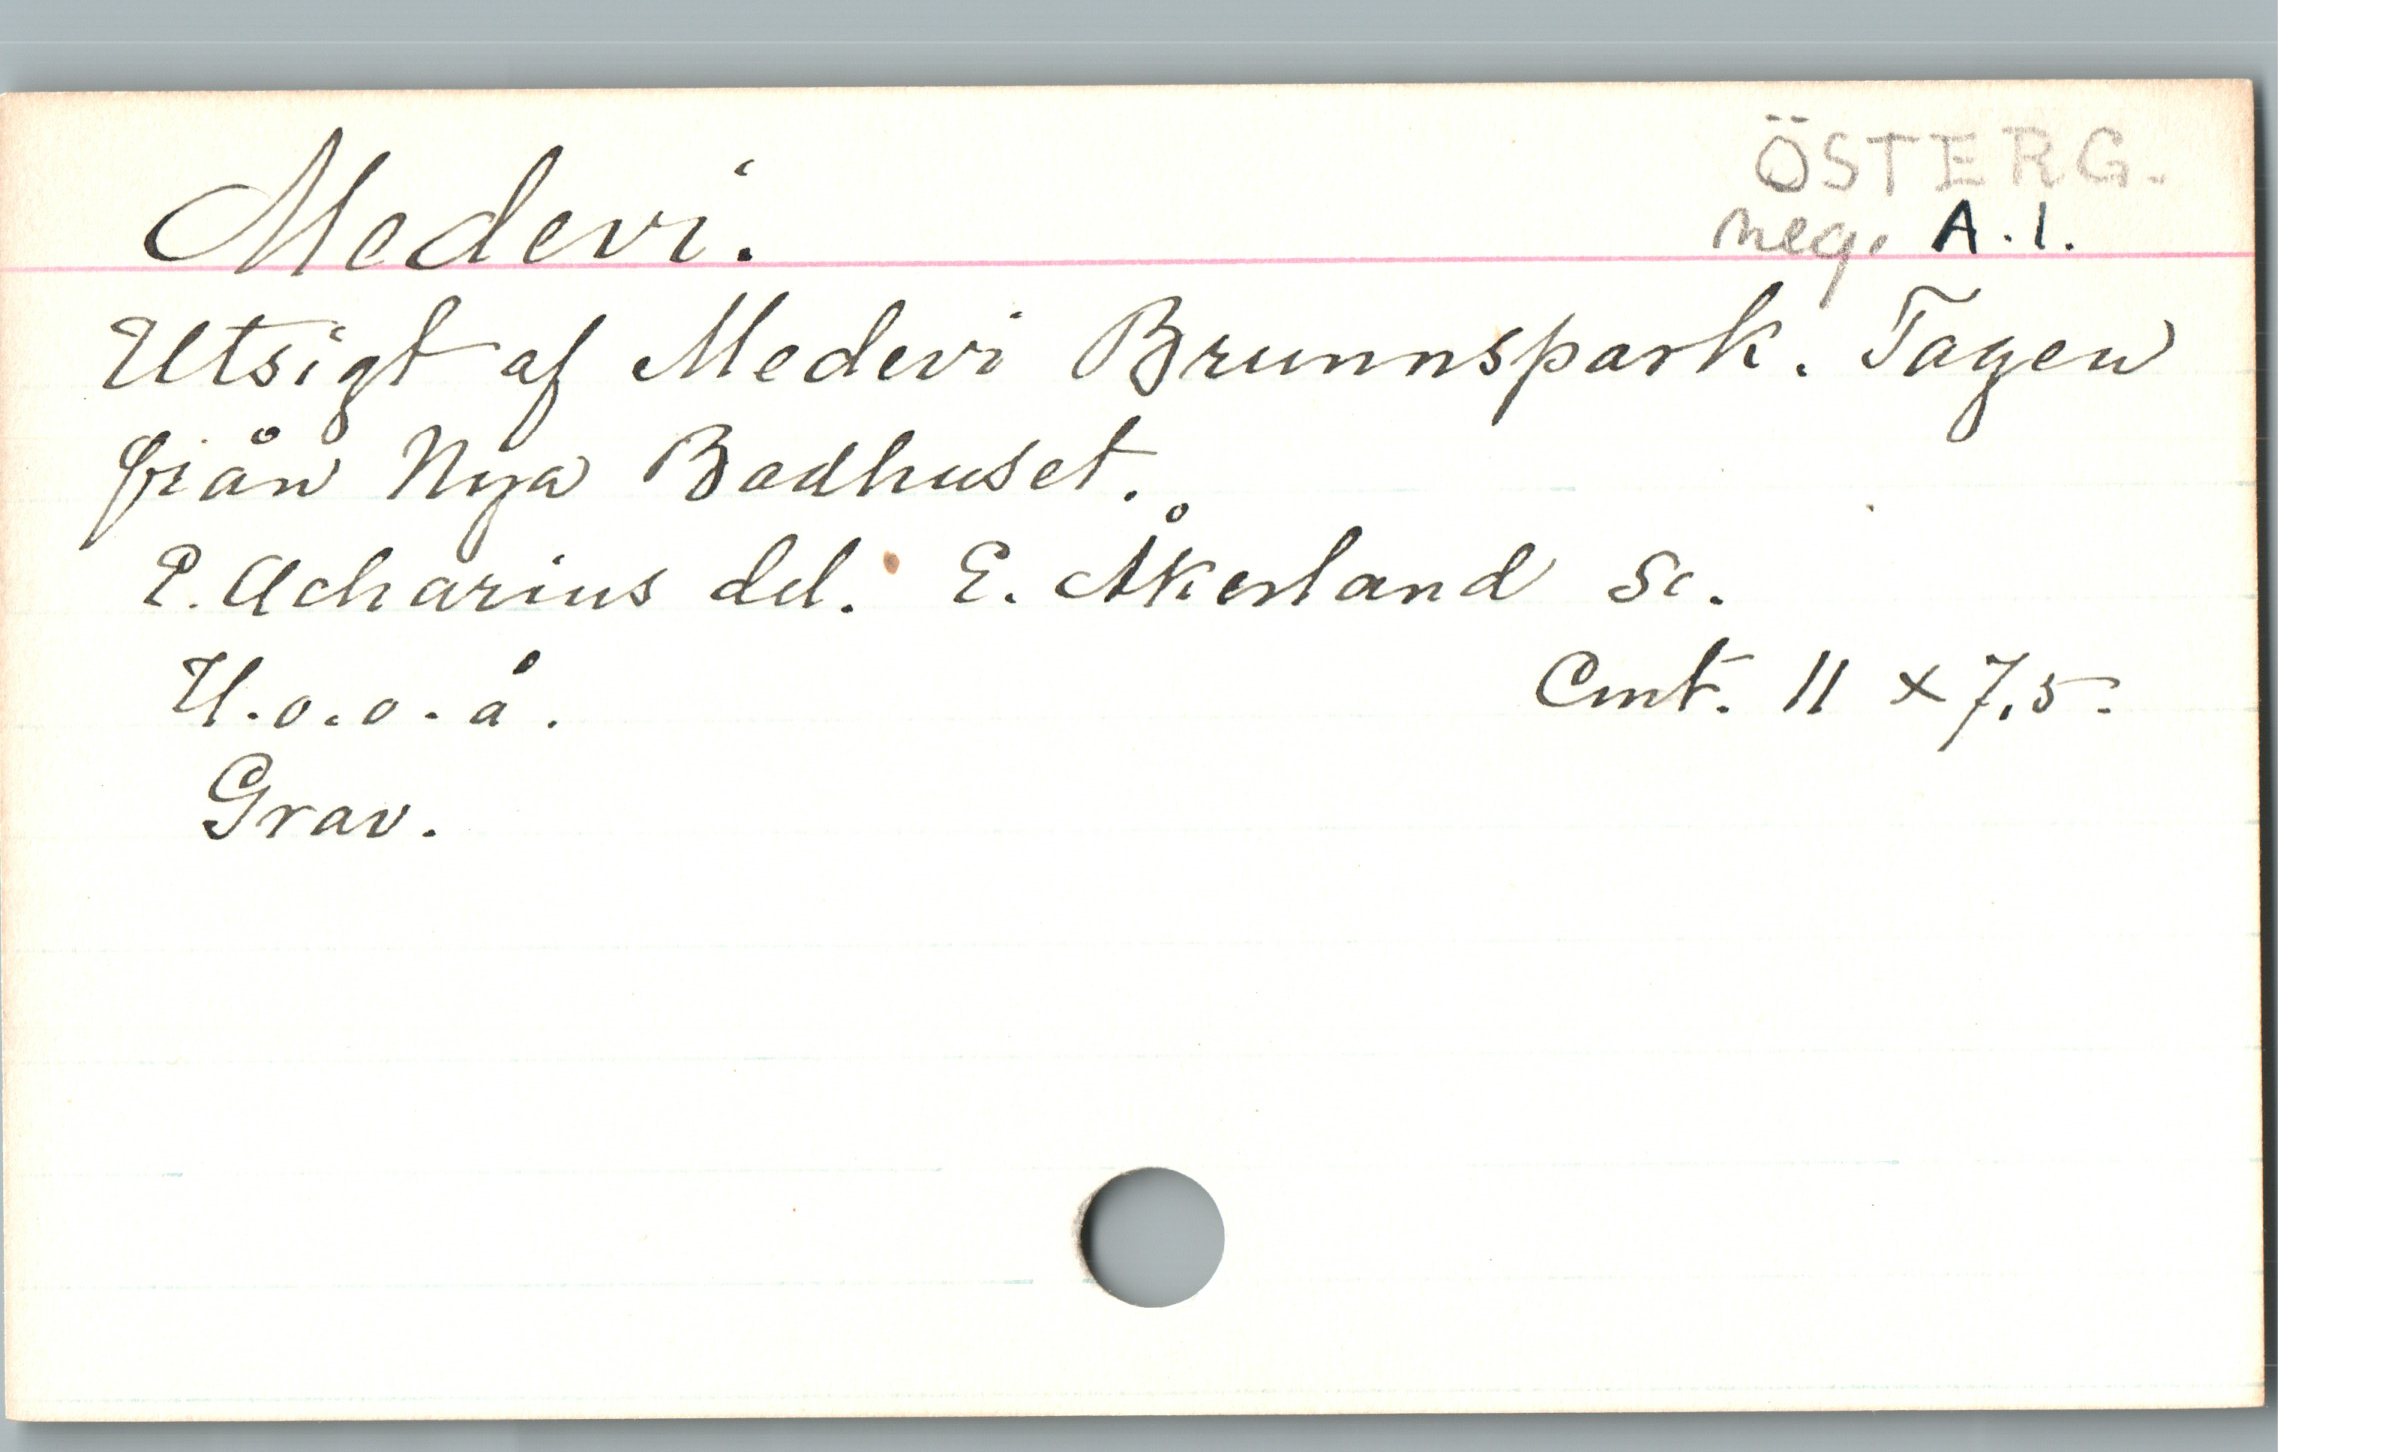 Medevi.
ÖSTERG.
neg. A.1.
Utsigt af Medevi Brunnspark. Tagen
från Nya Badhuset.
P. Acharius del. E. Åkerland sc.
U.o.o.å. Cmt. 11 x 7,5.
Grav.